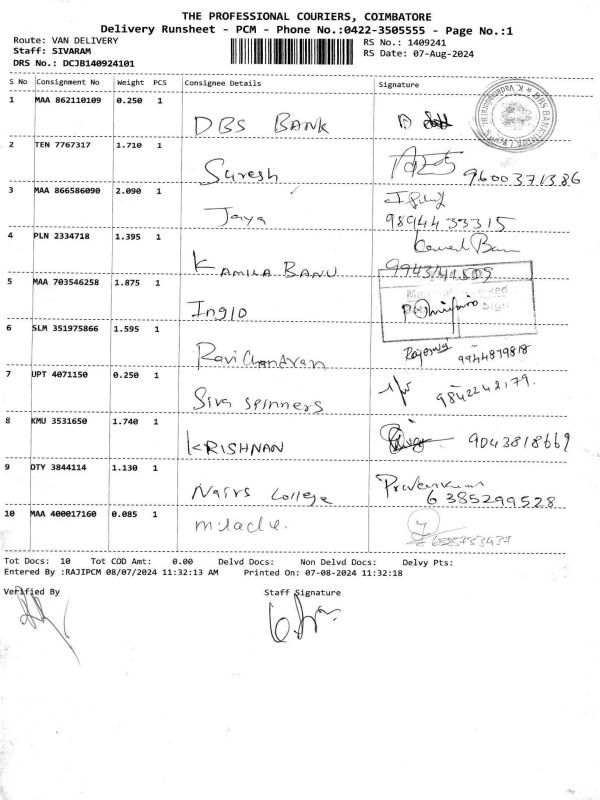 THE PROFESSIONAL COURIERS, COIMBATORE
Delivery Runsheet - PCM - Phone No.:0422-3505555 - Page No.:1
Route: VAN DELIVERY
RS No.: 1409241
Staff: SIVARAM
RS Date: 07-Aug-2024
DRS No.: DCJB140924101
S No Consignment No Weight PCS Consignee Details Signature
1 MAA 862110109 0.250 1
DBS BANK
2 TEN 7767317 1.710 1
Suresh 9600371386
3 MAA 866586090 2.090 1
Jaya 9894433315
4 PLN 2334718 1.395 1
KAMILA BANU
5 MAA 703546258 1.875 1
6 SLM 351975866 1.595 1
Ravi Chandran 9944879818
7 UPT 4071150 0.250 1
Siva spinners 9842242179.
8 KMU 3531650 1.740 1
KRISHNAN 9043818669
9 OTY 3844114 1.130 1
College 6385299528
10 MAA 400017160 0.085 1
Tot Docs: 10 Tot COD Amt: 0.00 Delvd Docs: Non Delvd Docs: Delvy Pts:
Entered By :RAJIPCM 08/07/2024 11:32:13 AM Printed On: 07-08-2024 11:32:18
Verified By Staff Signature